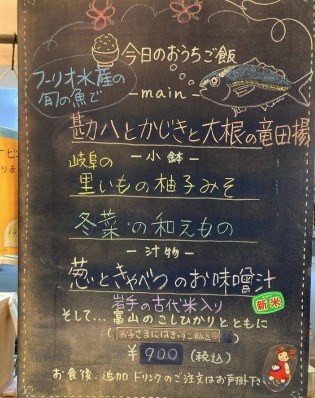 今日のおうちご飯
フーリオ水産の
旬の魚で
-main-
勘八とかじきと大根の竜田揚
-小鉢-
岐阜の
里いもの柚子みそ
冬菜の和えもの
-汁物-
葱ときゃべつのお味噌汁
新米
岩手の古代米入り
そして…富山のこしひかりとともに
¥900(税込)
お食後、追加ドリンクのご注文はお声掛け下さい